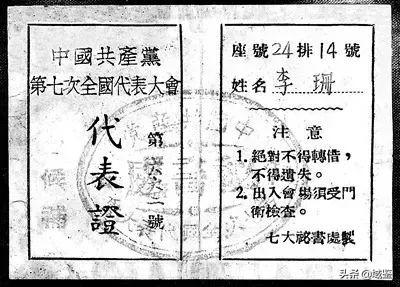 中國共產黨
第七次全國代表大會
代表證
候補
座號24排14號
姓名 李珊
注意
1. 絕對不得轉借，
不得遺失。
2. 出入會場須受門
衛檢查。
七大祕書處製
头条 @域鉴